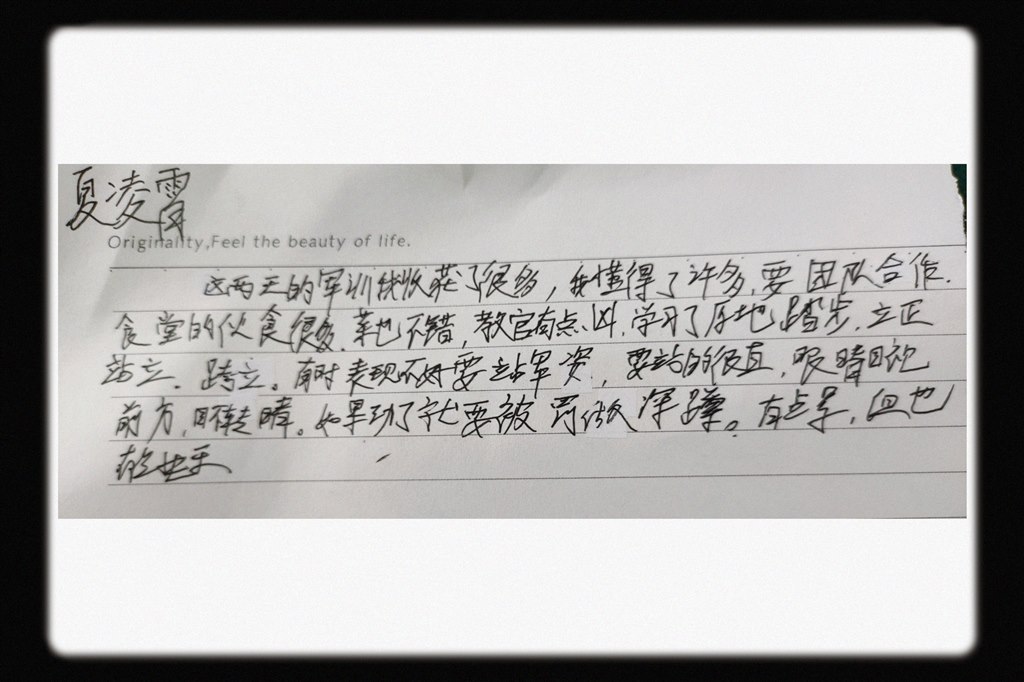 夏凌霄
Originality,Feel the beauty of life.
这两天的军训我收获了很多，我懂得了许多，要团队合作.
食堂的伙食很多.菜也不错，教官有点凶.学习了原地踏步.立正
站立、跨立。有时表现不好要站军姿，要站的很直，眼睛目视
前方，睛。如果动了就要被罚做深蹲。有点累，但也